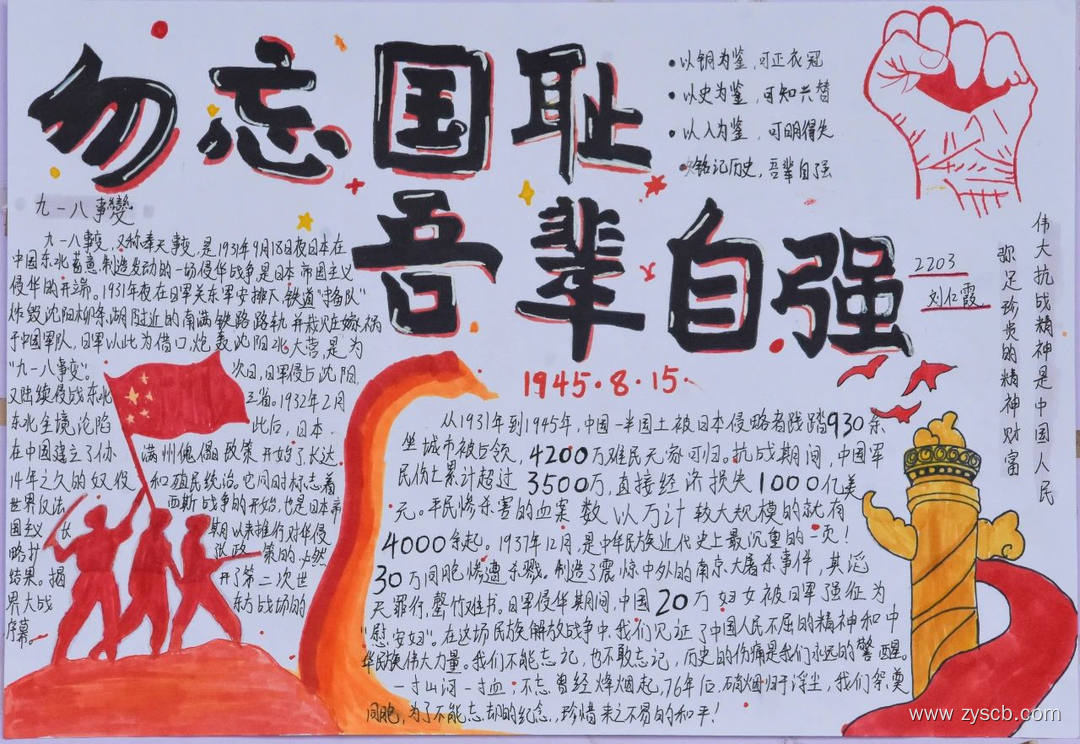 勿忘国耻
吾辈自强
•以铜为鉴,可正衣冠
•以史为鉴,可知兴替
•以人为鉴,可明得失
•铭记历史,吾辈自强
2203
刘仁霞
伟大抗战精神是中国人民
弥足珍贵的精神财富
1945·8·15·
九一八事變
九一八事变,又称奉天事变,是1931年9月18日夜日本在
中国东北蓄意制造发动的一场侵华战争是日本帝国主义
侵华的开端。1931年夜在日军关东军安排下,铁道"守备队"
炸毁沈阳柳条湖附近的南满铁路路轨并栽赃嫁祸
于中国军队,日军以此为借口,炮轰沈阳北大营,是为
"九一八事变"。次日,日军侵占沈阳,
又陆续侵战东北三省。1932年2月
东北全境沦陷 此后,日本
在中国建立了伪 满州傀儡政策 开始了长达
14年之久的奴役 和殖民统治。它同时标志着
世界反法 西斯战争的开始,也是日本帝
国主义 长期以来推行对华侵
略扩 张政策的必然
结果。揭 开了第二次世
界大战 东方战场的
序幕。
从1931年到1945年,中国一半国土被日本侵略者践踏930余
坐城市被占领,4200万难民无家可归。抗战期间,中国军
民伤亡累计超过3500万,直接经济损失1000亿美
元。平民惨杀害的血案数以万计较大规模的就有
4000余起。1937年12月,是中华民族近代史上最沉重的一页!
30万同胞惨遭杀戮。制造了震惊中外的南京大屠杀事件,其滔
天罪行,罄竹难书。日军侵华其期间,中国20万妇女被日军强征为
"慰安妇"。在这场民族解放战争中,我们见证了中国人民不屈的精神和中
华民族伟大力量。我们不能忘记,也不敢忘记,历史的伤痛是我们永远的警醒。
一寸山河一寸血;不忘曾经烽烟起,76年后,硝烟归于浮尘,我们祭奠
同胞,为了不能忘却的纪念,珍惜来之不易的和平!
www.zyscb.com